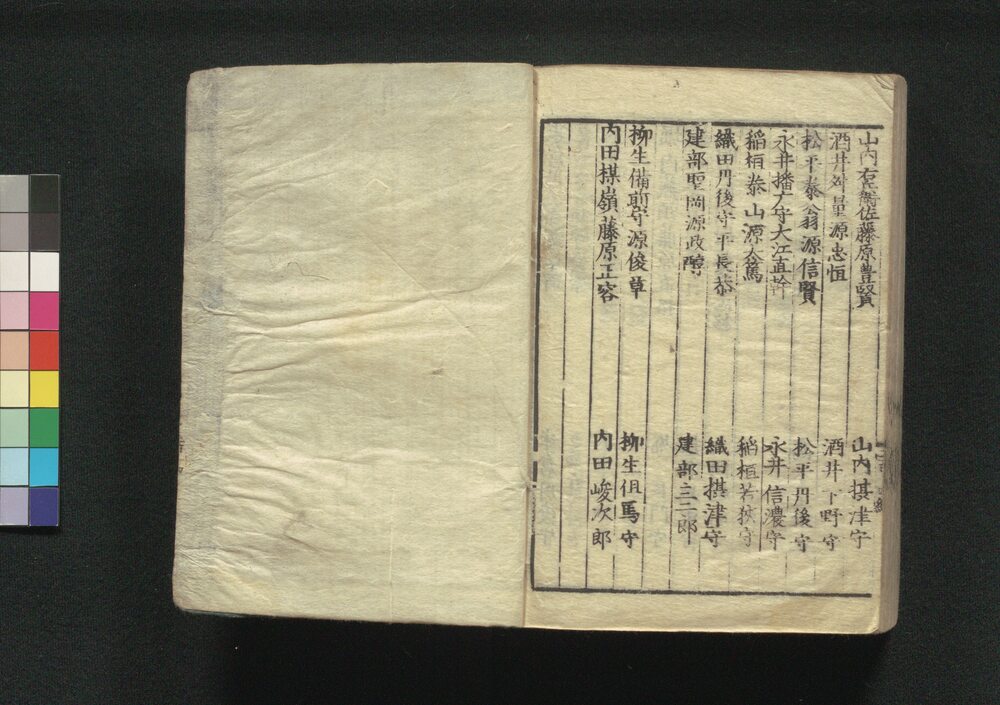 山内右兵衛佐藤原豊賢 山内摂津守
酒井対量源忠恒 酒井下野守
松平泰翁源信賢 松平丹後守
永井播广守大江直幹 永井信濃守
稲垣泰山源太篤 稲垣若狭守
織田丹後守平長恭 織田摂津守
建部聖岡源政醇 建部三二郎
柳生備前守源俊章 柳生但馬守
内田楳嶺藤原正容 内田峻次郎